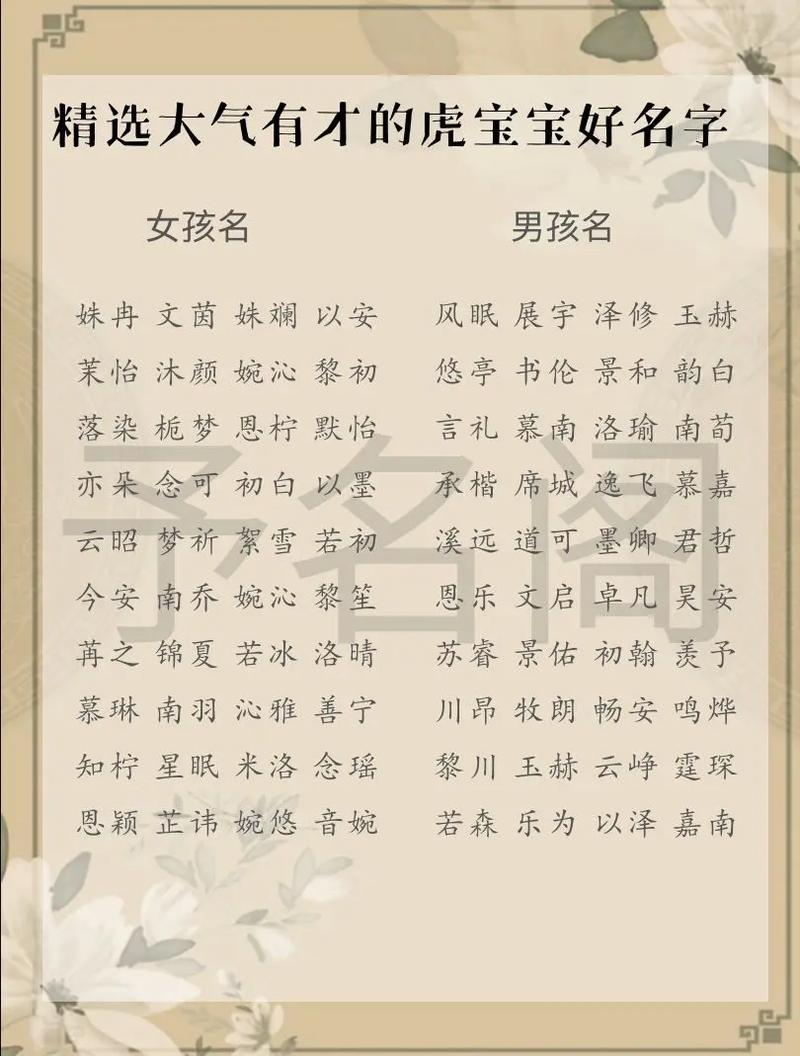 精选大气有才的虎宝宝好名字
女孩名 男孩名
姝冉 文茵 姝斓 以安 风眠 展宇 泽修 玉赫
茉怡 沐颜 婉沁 黎初 悠亭 书伦 景和 韵白
落染 栀梦 恩柠 默怡 言礼 慕南 洛瑜 南荀
亦朵 念可 初白 以墨 承楷 席城 逸飞 慕嘉
云昭 梦祈 絮雪 若初 溪远 道可 墨卿 君哲
今安 南乔 婉沁 黎笙 恩乐 文启 卓凡 昊安
苒之 锦夏 若冰 洛晴 苏睿 景佑 初翰 羡予
慕琳 南羽 沁雅 善宁 川昂 牧朗 畅安 鸣烨
知柠 星眠 米洛 念瑶 黎川 玉赫 云峥 霆琛
恩颖 芷讳 婉悠 音婉 若森 乐为 以泽 嘉南
予名阁